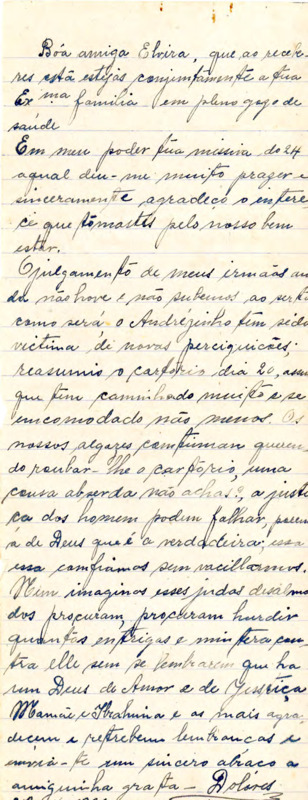 Bôa amiga Elvira, que, ao recebe-
res está estejas conjuntamente a tua
Ex.ma familia em pleno goso de
saúde
Em meu poder tua missiva do 24
aqual deu-me muito prazer e
sinceramente agradeço o intere
ce que tomastes pelo nosso bem
estar.
O julgamento de meus irmãos ain
da não hove e não sabemos ao serto
como será. o Andrézinho têm sido
victima di novas perciguições;
reasumio o cartorio dia 20, assim
que têm caminhado muito e se
incomodado não menos. Os
nossos algozes continuam queren
do roubar-lhe o cartório, uma
couva absurda não achas?, a justi
ça dos homem podem falhar, porem
a de Deus que é a verdadeira; essa
essa confiamos sem vacillarmos.
Nem imaginas esses judas desalma
dos procuram, procuram hurdir
quantas entrigas e mintira con
tra elle sem se lembrarem que ha
um Deus de Amor e de Justiça
Mamãe e Ibrahina e as mais agra
decem e retrebem lembranças e
envia-te um sincero abraço a
amiguinha grata — Dolôres